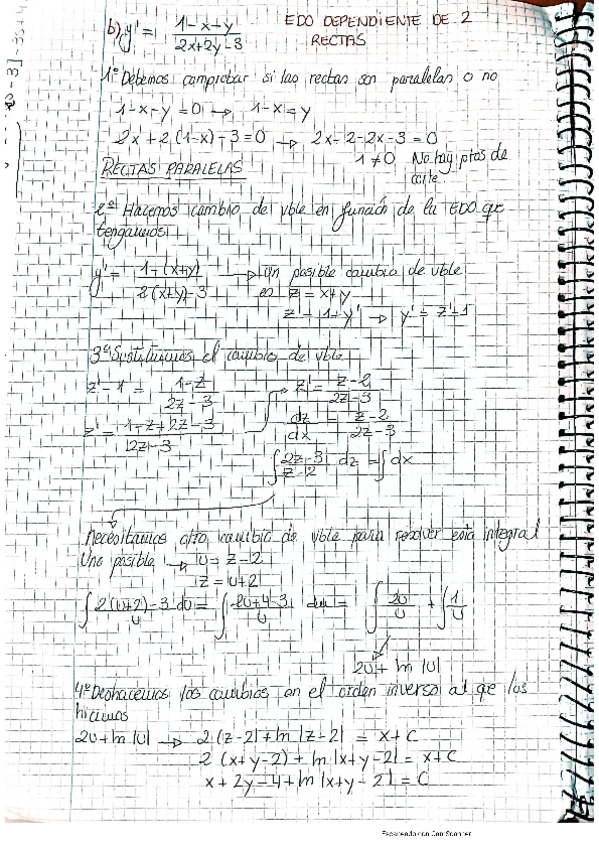 b) y' = 1-x+y / 2x+2y-3 EDO DEPENDIENTE DE 2
RECTAS
1º Debemos comprobar si las rectas son paralelas o no
1-x-y=0 → 1-x=y
2x+2(1-x)-3=0 → 2x-2-2x-3=0
1≠0 No hay ptos de
corte
RECTAS PARALELAS
2º Hacemos cambio de vble en función de la EDO que
tengamos
y' = 1-(x+y) / 2(x+y)-3 → Un posible cambio de vble
es z=x+y
z'=1+y' → y'=z'-1
3º Sustituimos el cambio de vble
z'-1 = 1-z / 2z-3 → z' = z-2 / 2z-3
z' = 1-z+2z-3 / 2z-3
dz/dx = z-2 / 2z-3
∫ 2z-3 / z-2 dz = ∫ dx
Necesitamos otro cambio de vble para resolver esta integral
Uno posible → u=z-2
z=u+2
∫ 2(u+2)-3 / u du = ∫ 2u+4-3 / u du = ∫ 2u/u + ∫ 1/u
2u+ln|u|
4º Deshacemos los cambios en el orden inverso al que los
hicimos
2u+ln|u| → 2(z-2)+ln|z-2| = x+C
2(x+y-2)+ln|x+y-2| = x+C
x+2y-4+ln|x+y-2| = C
Escaneado con CamScanner